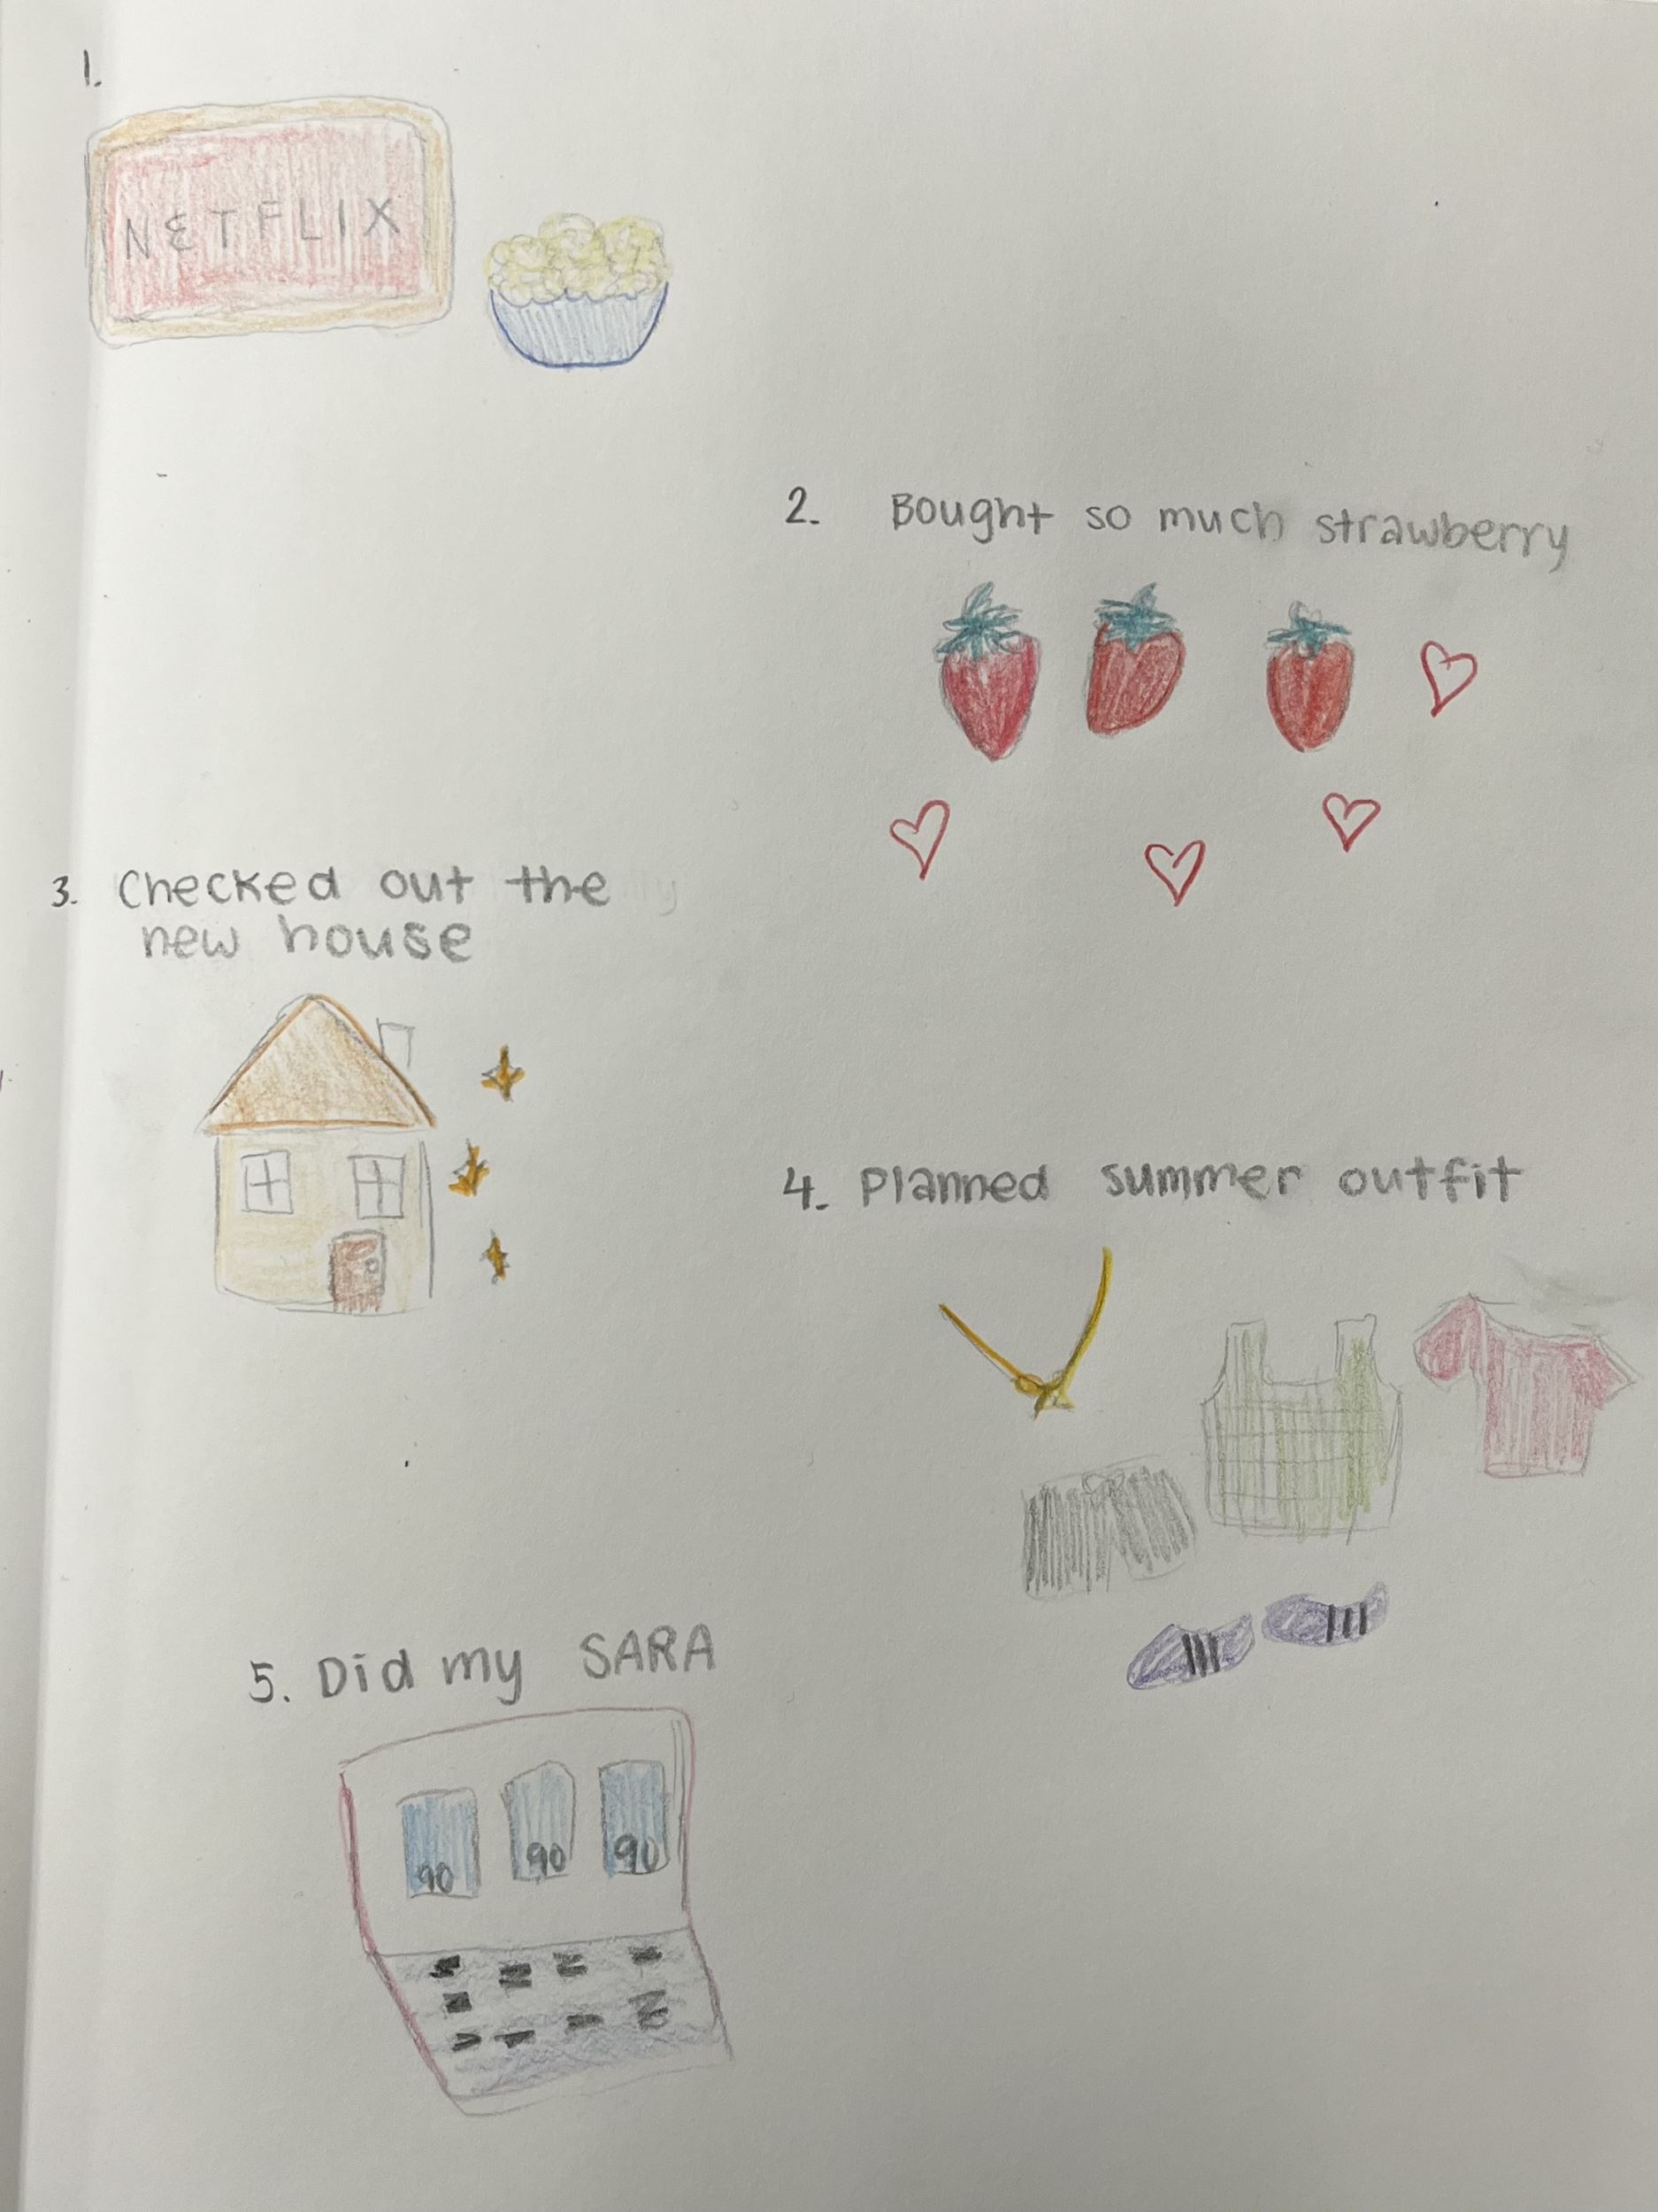 1.
NETFLIX
2. Bought so much strawberry
3. Checked out the
new house
4. Planned summer outfit
5. Did my SARA
90 90 90